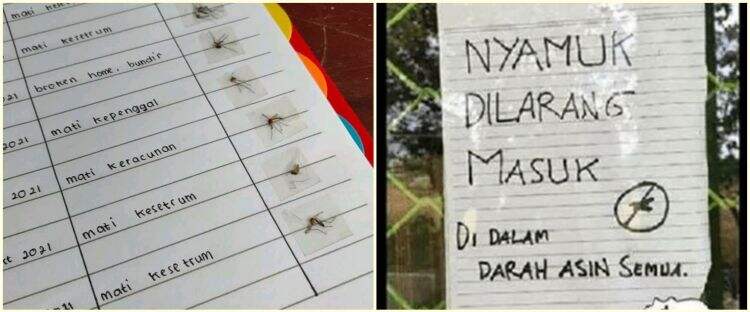 mati kesetrum
2021 broken home, bundir
2021 mati kepenggal
2021 mati keracunan
2021 mati kesetrum
2021 mati kesetrum
NYAMUK
DILARANG
MASUK
DI DALAM
DARAH ASIN SEMUA.